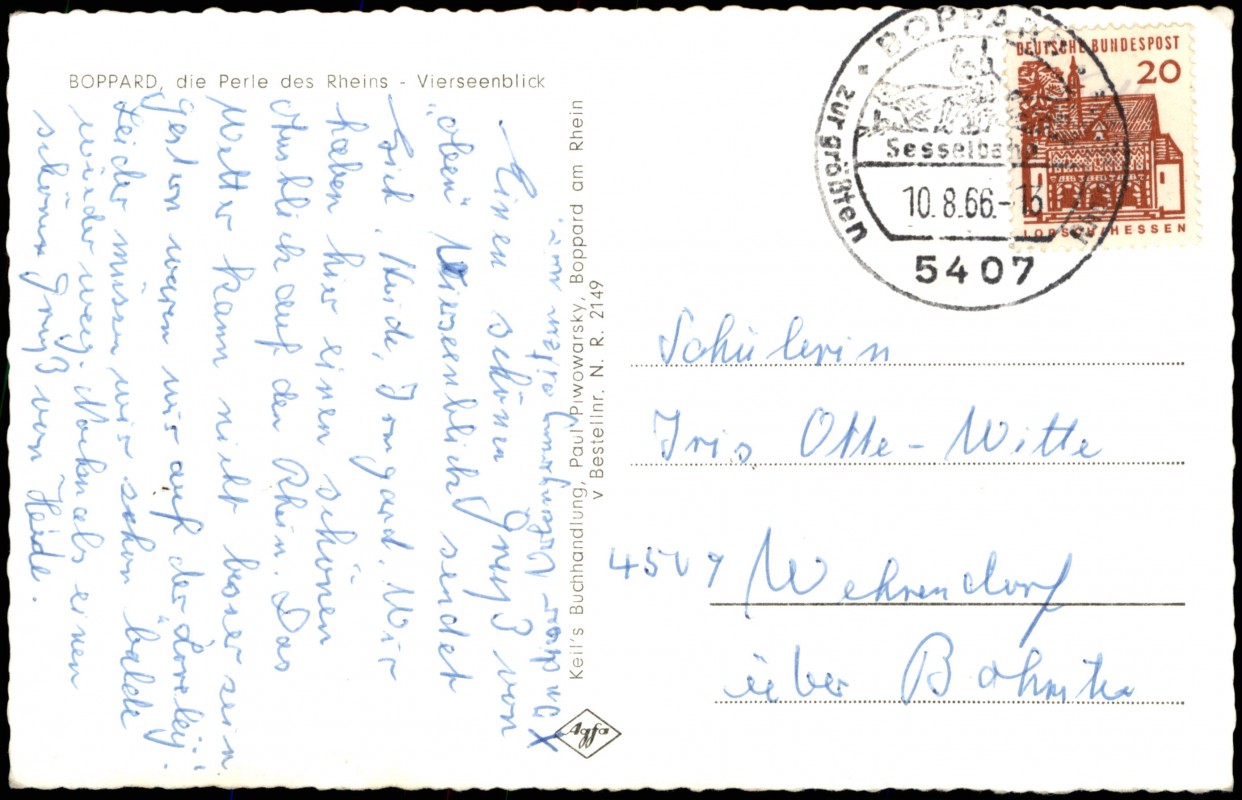 BOPPARD, die Perle des Rheins - Vierseenblick
Keil's Buchhandlung, Paul Piwowarsky, Boppard am Rhein
v Bestellnr. N. R. 2149
Agfa
* BOPPARD *
zur größten
Sesselbahn
10.8.66.-13
5407
DEUTSCHE BUNDESPOST
20
LORSCH/HESSEN
Einen schönen Gruß von
"oben" Vierseenblick sendet
Grit, Heide, Irmgard. Wir
haben hier einen schönen
Ausblick auf den Rhein. Das
Wetter kann nicht besser sein.
Gestern waren wir auf der "Loreley".
Leider müssen wir schon bald
wieder weg. Nochmals einen
schönen Gruß von Heide.
X An dieser
sitzen wir
Schülerin
Iris Otte-Witte
4509 Wehrendorf
über Bohmte